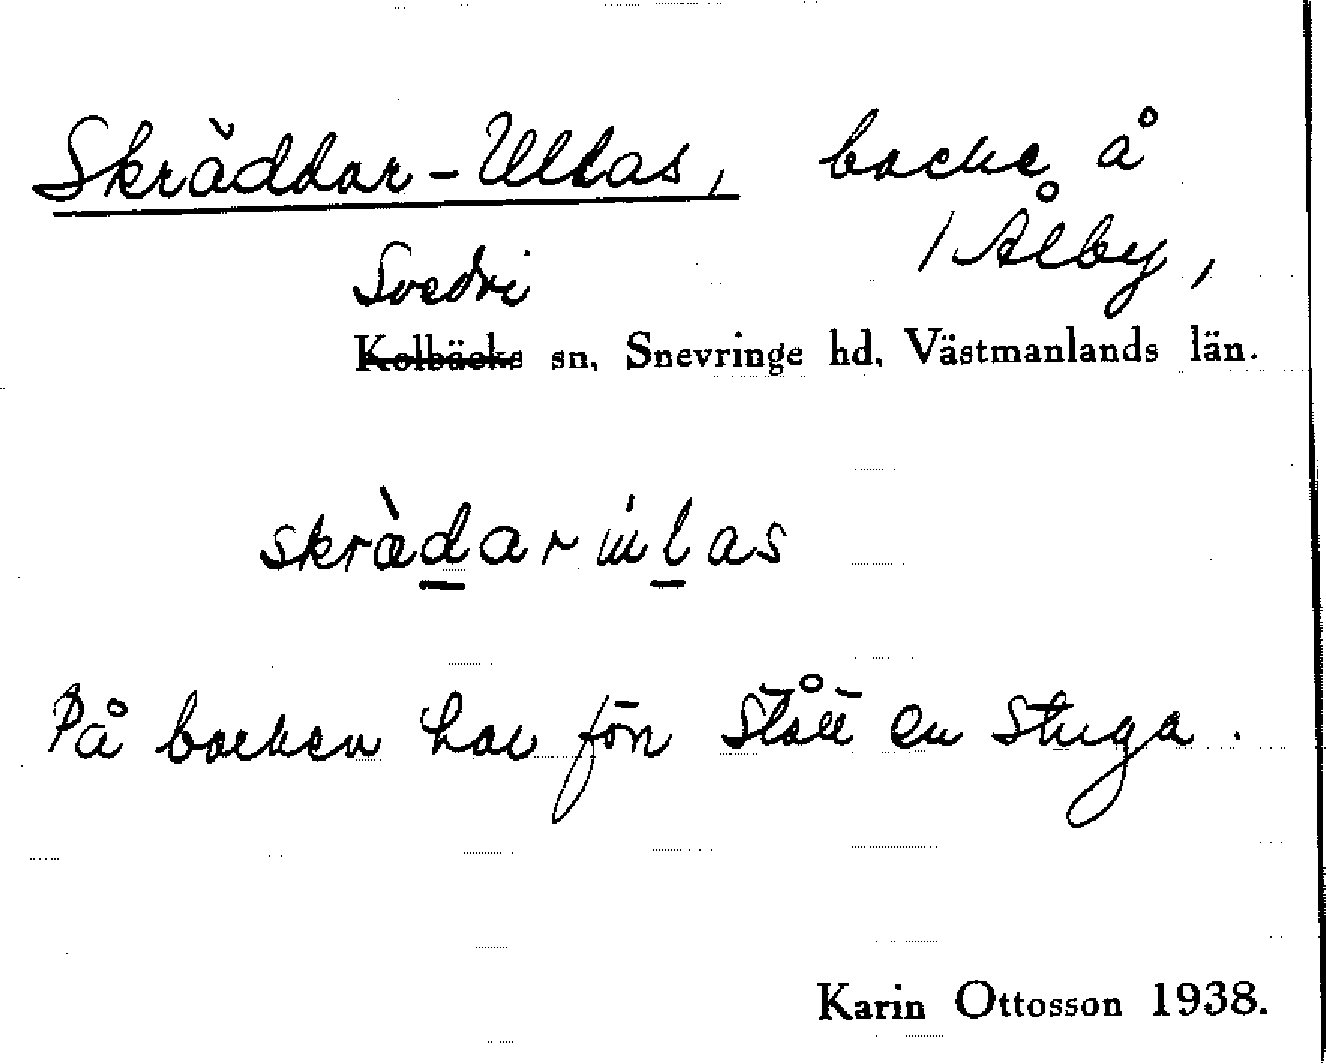 Skräddar-Ullas, backe å
/ Ålby,
Svedvi
Kolbäcks sn, Snevringe hd, Västmanlands län.
skrædar ulas
På backen har förr stått en stuga.
Karin Ottosson 1938.